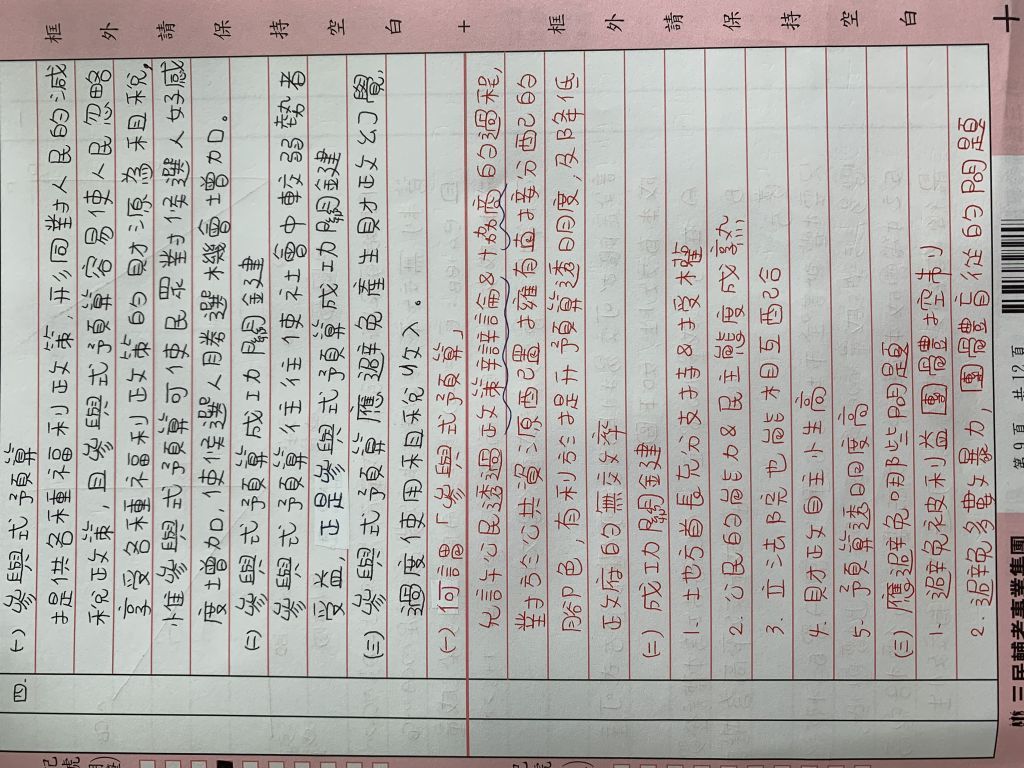 框 外 請 保 持 空 白
框 外 請 保 持 空 白
四.
(一) 參與式預算
提供各種福利政策,形同對人民的減
稅政策,且參與式預算容易使人民忽略
享受各種福利政策的財源為租稅,
惟參與式預算可使民眾對候選人好感
度增加,使候選人勝選機會增加。
(二) 參與式預算成功關鍵
參與式預算往往使社會中較弱勢者
受益,正是參與式預算成功關鍵
(三) 參與式預算應避免產生財政幻覺,
過度使用租稅收入。
(一) 何謂「參與式預算」
允許公民透過政策辯論&協商的過程,
對於公共資源配置擁有直接分配的
腳色,有利於提升預算透明度,及降低
政府的無效率
(二) 成功關鍵
1. 地方首長充分支持&授權
2. 公民的能力&民主態度成熟
3. 立法院也能相互配合
4. 財政自主性高
5. 預算透明度高
(三) 應避免哪些問題
1. 避免被利益團體控制
2. 避免多數暴力,團體盲從的問題
三民輔考事業集團
第 9 頁 共 12 頁